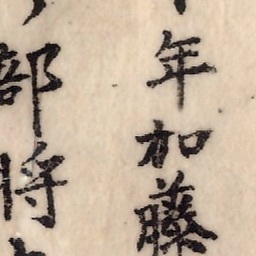 年加藤
部将